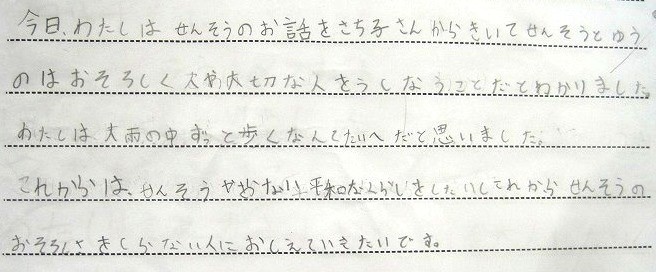 今日、わたしは せんそうのお話をさち子さんからきいてせんそうとゆう
のはおそろしく 大切な人をうしなうことだとわかりました。
わたしは大雨の中ずっと歩くなんてたいへんだと思いました。
これからは、せんそう ない 平和な くらしをしたいしこれから せんそうの
おそろしさをしらない人におしえていきたいです。